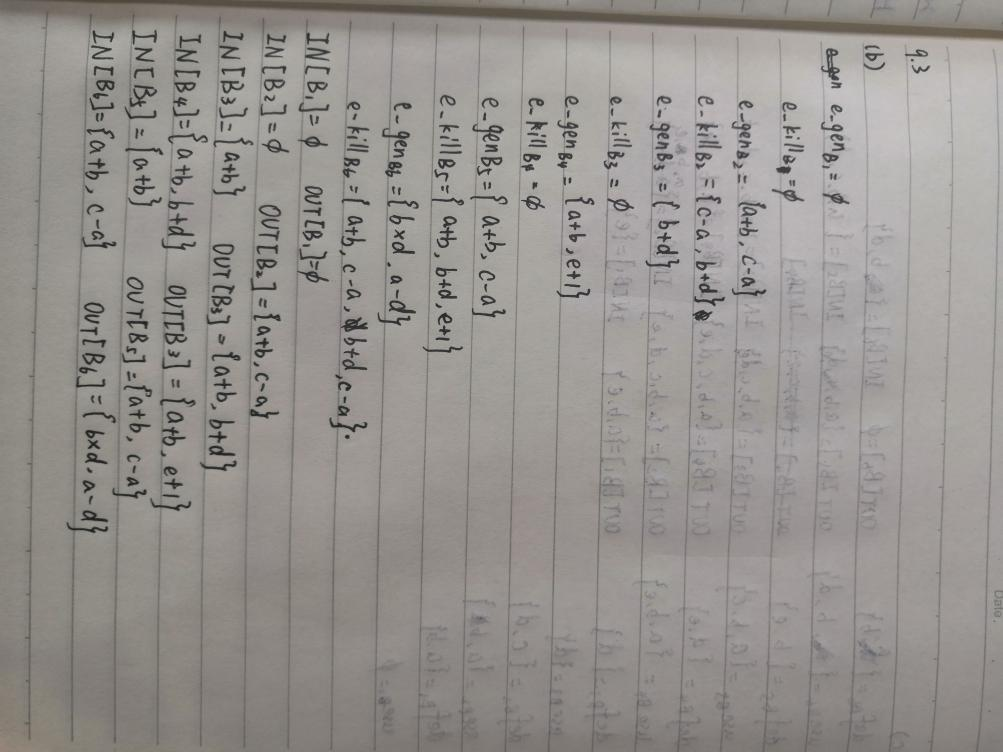 9.3
(b)
e_gen B₁ = ϕ
e_kill B₁ = ϕ
e_gen B₂ = {a+b, c-a}
e_kill B₂ = {c-a, b+d}
e_gen B₃ = {b+d}
e_kill B₃ = ϕ
e_gen B₄ = {a+b, e+1}
e_kill B₄ = ϕ
e_gen B₅ = {a+b, c-a}
e_kill B₅ = {a+b, b+d, e+1}
e_gen B₆ = {b×d, a-d}
e_kill B₆ = {a+b, c-a, b+d, c-a}.
IN[B₁] = ϕ OUT[B₁] = ϕ
IN[B₂] = ϕ OUT[B₂] = {a+b, c-a}
IN[B₃] = {a+b} OUT[B₃] = {a+b, b+d}
IN[B₄] = {a+b, b+d} OUT[B₃] = {a+b, e+1}
IN[B₅] = {a+b} OUT[B₅] = {a+b, c-a}
IN[B₆] = {a+b, c-a} OUT[B₆] = {b×d, a-d}